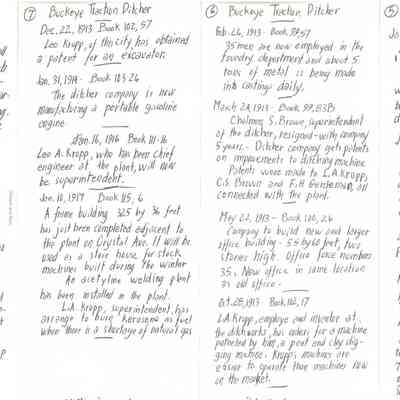 ⑦ Buckeye Traction Ditcher
Dec. 22, 1913 Book 102, 57
Leo Kropp, of this city has obtained
a patent for an excavator.
Jan. 31, 1914 - Book 103-26
The ditcher company is now
manufacturing a portable gasoline
engine
Jan. 16, 1916 Book 111-16
Leo A. Kropp, who has been chief
engineer at the plant, will now
be superintendent.
Jan. 10, 1917 Book 115, 6
A frame building 325 by 36 feet
has just been completed adjacent to
the plant on Crystal Ave. It will be
used as a store house for stock
machines built during the winter
An acetylene welding plant
has been installed in the plant.
L.A. Kropp, superintendent, has
arrange to burn kerosene as fuel
when there is a shortage of natural gas
⑥ Buckeye Traction, Ditcher
Feb. 26, 1913 - Book 99, 57
35 men are now employed in the
foundry department and about 5
tons of metal is being made
into castings daily.
March 29, 1913 - Book 99, 133
Chalmes S. Brown, superintendent
of the ditcher, resigned - with company
5 years. - Ditcher company gets patents
on improvements to ditching machine
Patents were made to L.A. Kropp,
C.S Brown and F.H Gerdeman, all
connected with the plant.
May 22, 1913 - Book 100, 26
Company to build new and larger
office building - 55 by 60 feet, two
stories high. Office force numbers
35. New office in same location
as old office.
Oct. 28, 1913 - Book 102, 17
L.A. Kropp, employe and inventor at
the ditchworks, has orders for a machine
patented by him, a peat and clay dig-
ging machine. Kropp's machines are
easier to operate than machines now
on the market.
⑤